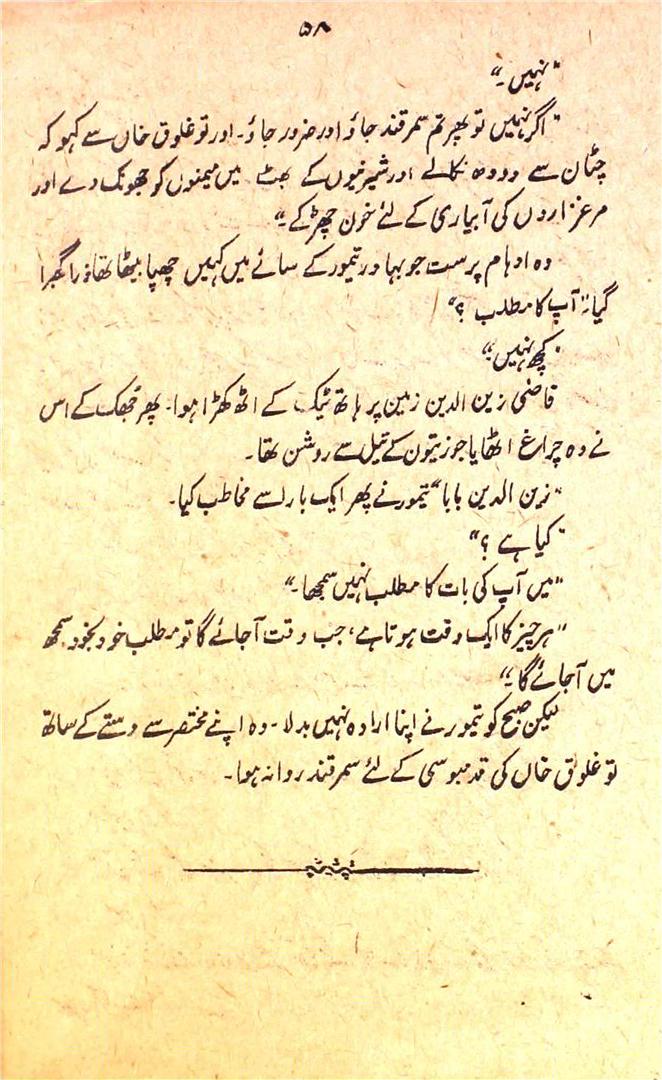 ۵۸
"نہیں۔"
"اگر نہیں تو پھر تم سمرقند جاؤ اور ضرور جاؤ۔ اور توغلوق خاں سے کہو کہ
چٹان سے دودھ نکالے اور شیرنیوں کے بھٹ میں میمنوں کو جھونک دے اور
مرغزاروں کی آبیاری کے لئے خون چھڑکے۔"
وہ اوہام پرست جو بہادر تیمور کے سائے میں کہیں چھپا بیٹھا تھا ذرا گھبرا
گیا: "آپ کا مطلب ؟"
"کچھ نہیں"
قاضی زین الدین زمین پر ہاتھ ٹیک کے اٹھ کھڑا ہوا۔ پھر جھک کے اس
نے وہ چراغ اٹھایا جو زیتون کے تیل سے روشن تھا۔
"زین الدین بابا" تیمور نے پھر ایک بار اسے مخاطب کیا۔
"کیا ہے ؟"
"میں آپ کی بات کا مطلب نہیں سمجھا۔"
"ہر چیز کا ایک وقت ہوتا ہے، جب وقت آجائے گا تو مطلب خود بخود سمجھ
میں آجائے گا۔"
لیکن صبح کو تیمور نے اپنا ارادہ نہیں بدلا۔ وہ اپنے مختصر سے دستے کے ساتھ
توغلوق خاں کی قدمبوسی کے لئے سمرقند روانہ ہوا۔